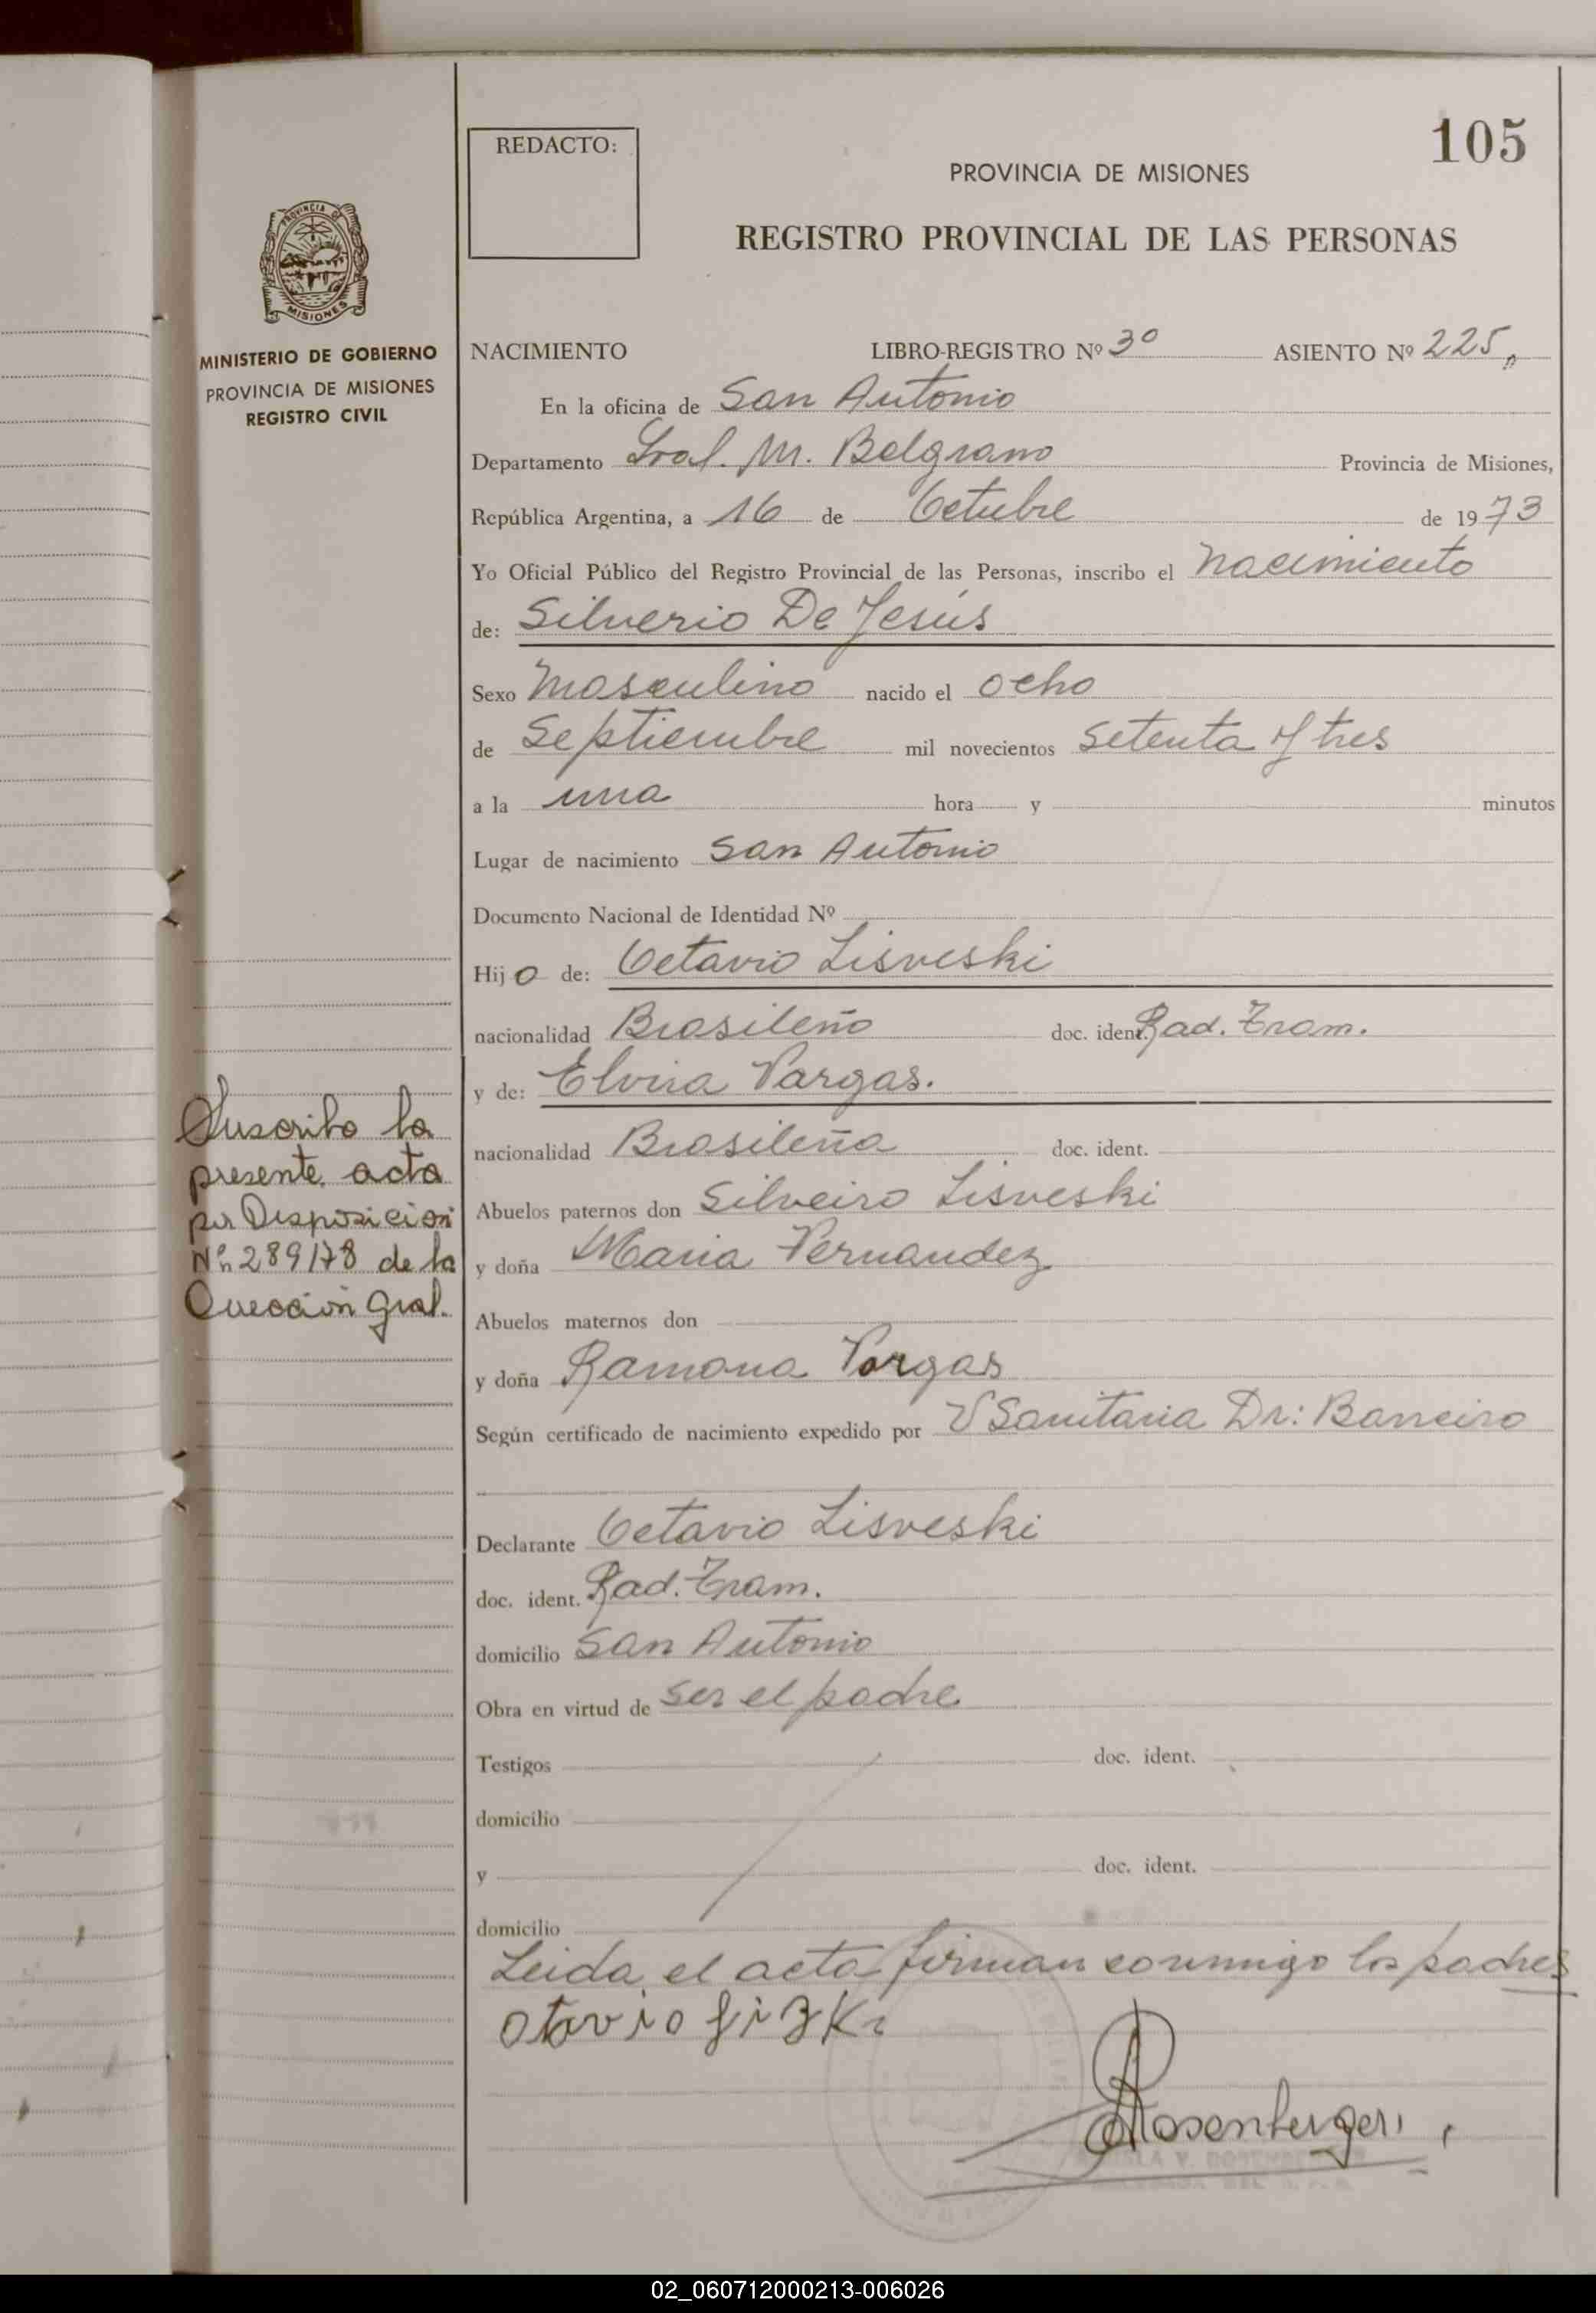 105
REDACTO:
PROVINCIA DE MISIONES
REGISTRO PROVINCIAL DE LAS PERSONAS
PROVINCIA DE
MISIONES
MINISTERIO DE GOBIERNO
PROVINCIA DE MISIONES
REGISTRO CIVIL
NACIMIENTO LIBRO-REGISTRO Nº 3º ASIENTO Nº 225
En la oficina de San Antonio
Departamento Gral. M. Belgrano Provincia de Misiones,
República Argentina, a 16 de Octubre de 1973
Yo Oficial Público del Registro Provincial de las Personas, inscribo el Nacimiento
de: Silverio De Jesús
Sexo Masculino nacido el ocho
de Septiembre mil novecientos setenta y tres
a la una hora y minutos
Lugar de nacimiento San Antonio
Documento Nacional de Identidad Nº
Hijo de: Octavio Lisveski
nacionalidad Brasileño doc. ident. Rad. Tram.
y de: Elvira Vargas.
nacionalidad Brasileña doc. ident.
Abuelos paternos don Silveiro Lisveski
y doña Maria Fernandez
Abuelos maternos don
y doña Ramona Vargas
Según certificado de nacimiento expedido por U Sanitaria Dr: Barreiro
Declarante Octavio Lisveski
doc. ident. Rad. Tram.
domicilio San Antonio
Obra en virtud de ser el padre
Testigos doc. ident.
domicilio
y doc. ident.
domicilio
Leida el acta firman conmigo los padres
Suscribo la
presente acta
por Disposicion
Nº 289/78 de la
Dirección Gral.
Rosenberger
02_060712000213-006026